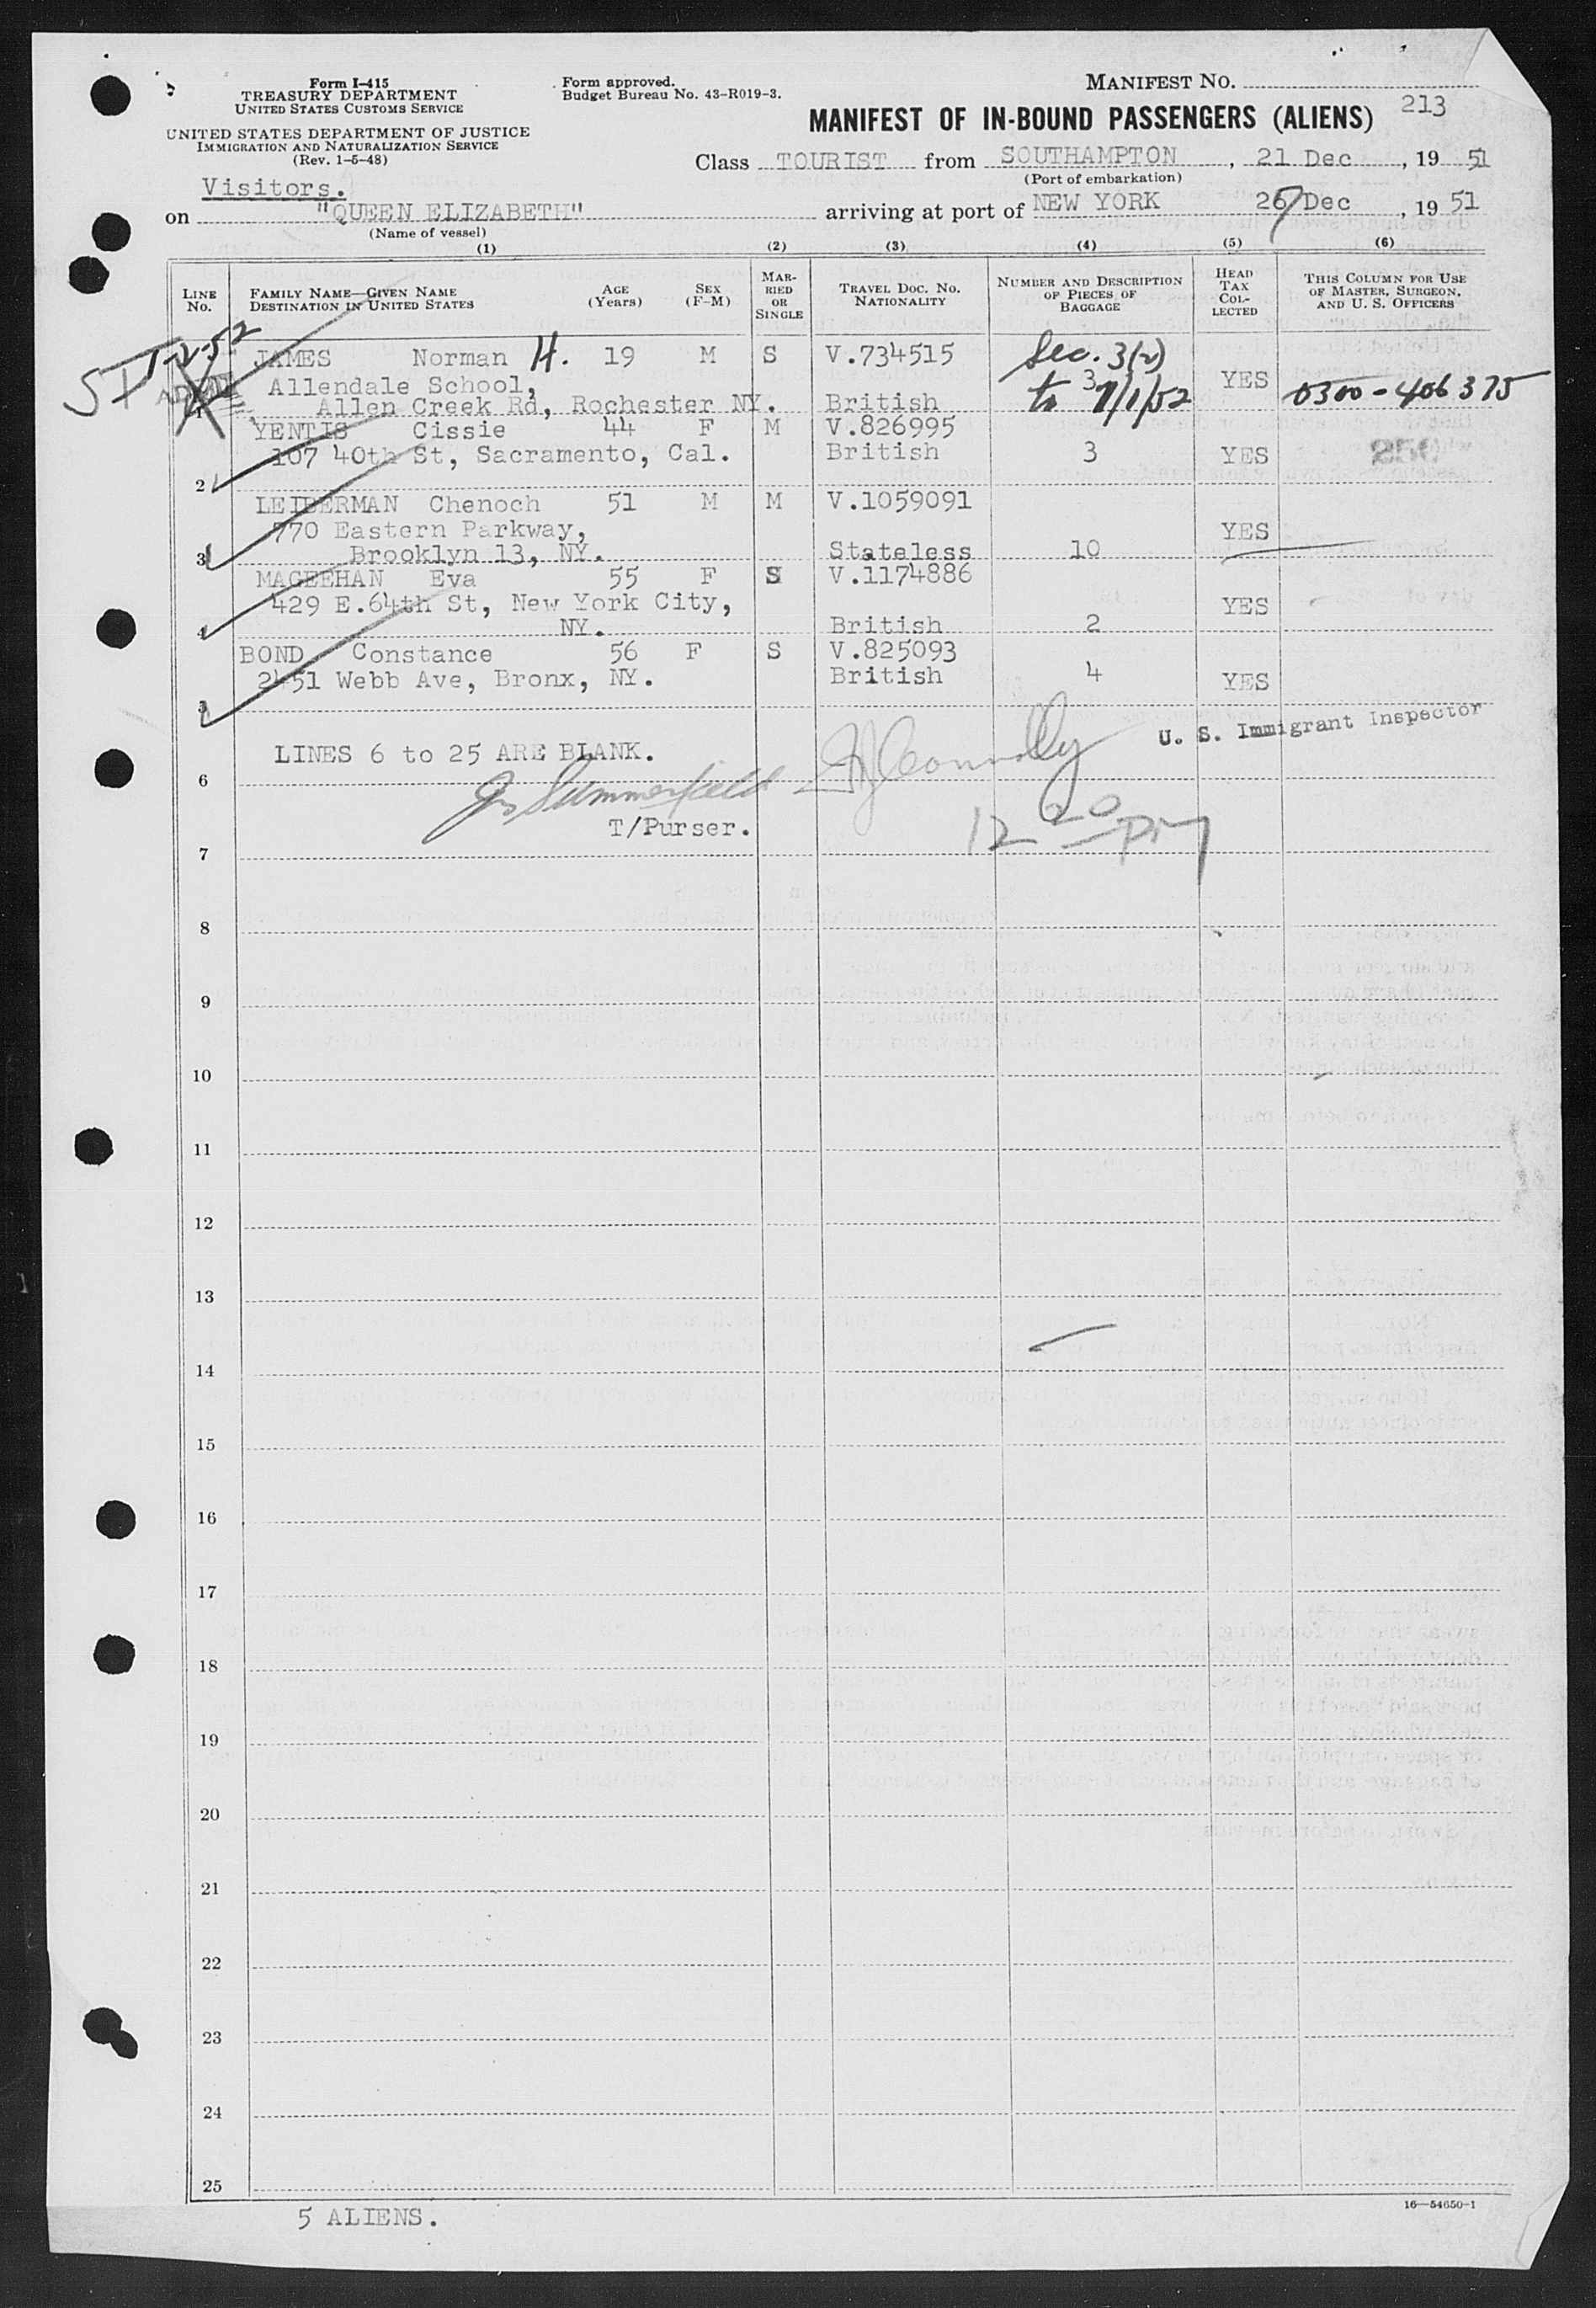 Form I-415
TREASURY DEPARTMENT
UNITED STATES CUSTOMS SERVICE
UNITED STATES DEPARTMENT OF JUSTICE
IMMIGRATION AND NATURALIZATION SERVICE
(Rev. 1-5-48)
Form approved.
Budget Bureau No. 43-R019-3.
MANIFEST NO.
MANIFEST OF IN-BOUND PASSENGERS (ALIENS) 213
Class TOURIST from SOUTHAMPTON, 21 Dec, 19 51
(Port of embarkation)
Visitors.
on "QUEEN ELIZABETH" arriving at port of NEW YORK 267 Dec, 19 51
(Name of vessel)
(1) (2) (3) (4) (5) (6)
LINE No. FAMILY NAME—GIVEN NAME DESTINATION IN UNITED STATES AGE (Years) SEX (F-M) MARRIED OR SINGLE TRAVEL DOC. NO. NATIONALITY NUMBER AND DESCRIPTION OF PIECES OF BAGGAGE HEAD TAX COLLECTED THIS COLUMN FOR USE OF MASTER, SURGEON, AND U. S. OFFICERS
SI 1-2-52
JAMES Norman H. 19 M S V.734515 Sec. 3(2)
Allendale School, 3 YES
1 Allen Creek Rd, Rochester NY. British to 7/1/52 0300-406375
YENTIS Cissie 44 F M V.826995
107 40th St, Sacramento, Cal. British 3 YES
2
LEIBERMAN Chenoch 51 M M V.1059091
770 Eastern Parkway, YES
3 Brooklyn 13, NY. Stateless 10
MAGEEHAN Eva 55 F S V.1174886
429 E.64th St, New York City, YES
4 NY. British 2
BOND Constance 56 F S V.825093
2451 Webb Ave, Bronx, NY. British 4 YES
5
U. S. Immigrant Inspector
LINES 6 to 25 ARE BLANK.
6
Summerfield Connolly
T/Purser. 12 20 pm
7
8
9
10
11
12
13
14
15
16
17
18
19
20
21
22
23
24
25
5 ALIENS.
16—54650-1